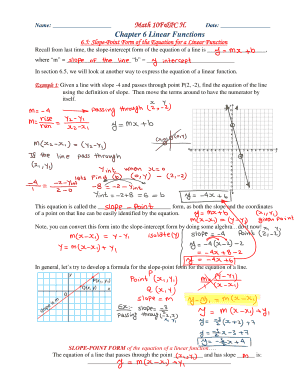 Name: Math 10F&PC H. Date:
Chapter 6 Linear Functions
6.5: Slope-Point Form of the Equation for a Linear Function
Recall from last time, the slope-intercept form of the equation of a line is y = mx + b,
where "m" = slope of the line "b" = y intercept
In section 6.5, we will look at another way to express the equation of a linear function.
Example 1: Given a line with slope -4 and passes through point P(2, -2), find the equation of the line
using the definition of slope. Then move the terms around to have the numerator by
itself.
m = -4 → passing through (2, -2)
m = rise/run = y₂-y₁/x₂-x₁
y = mx + b
m(x₂-x₁) = (y₂-y₁)
If the line pass through
(x₁, y₁)
y int when x = 0
(2, -2)
-8 = -2 - yint
yint = -2+8 = 6 = b
y = -4x + 6
This equation is called the slope - point form, as both the slope and the coordinates
of a point on that line can be easily identified by the equation.
y = mx + b
Note, you can convert this form into the slope-intercept form by doing some algebra...do it now!
m(x-x₁) = y-y₁ isolate (y)
y = m(x-x₁) + y₁
slope = -4
y = -4(x-2)-2
= -4x+8-2
y = -4x+6
In general, let's try to develop a formula for the slope-point form for the equation of a line.
Point P(x₁, y₁)
Q (x, y)
slope = m
y-y₁ = m(x-x₁)
y = m(x-x₁)+y₁
passing through
SLOPE-POINT FORM of the equation of a linear function
The equation of a line that passes through the point (x₁, y₁) and has slope m is:
y = m(x-x₁) + y₁